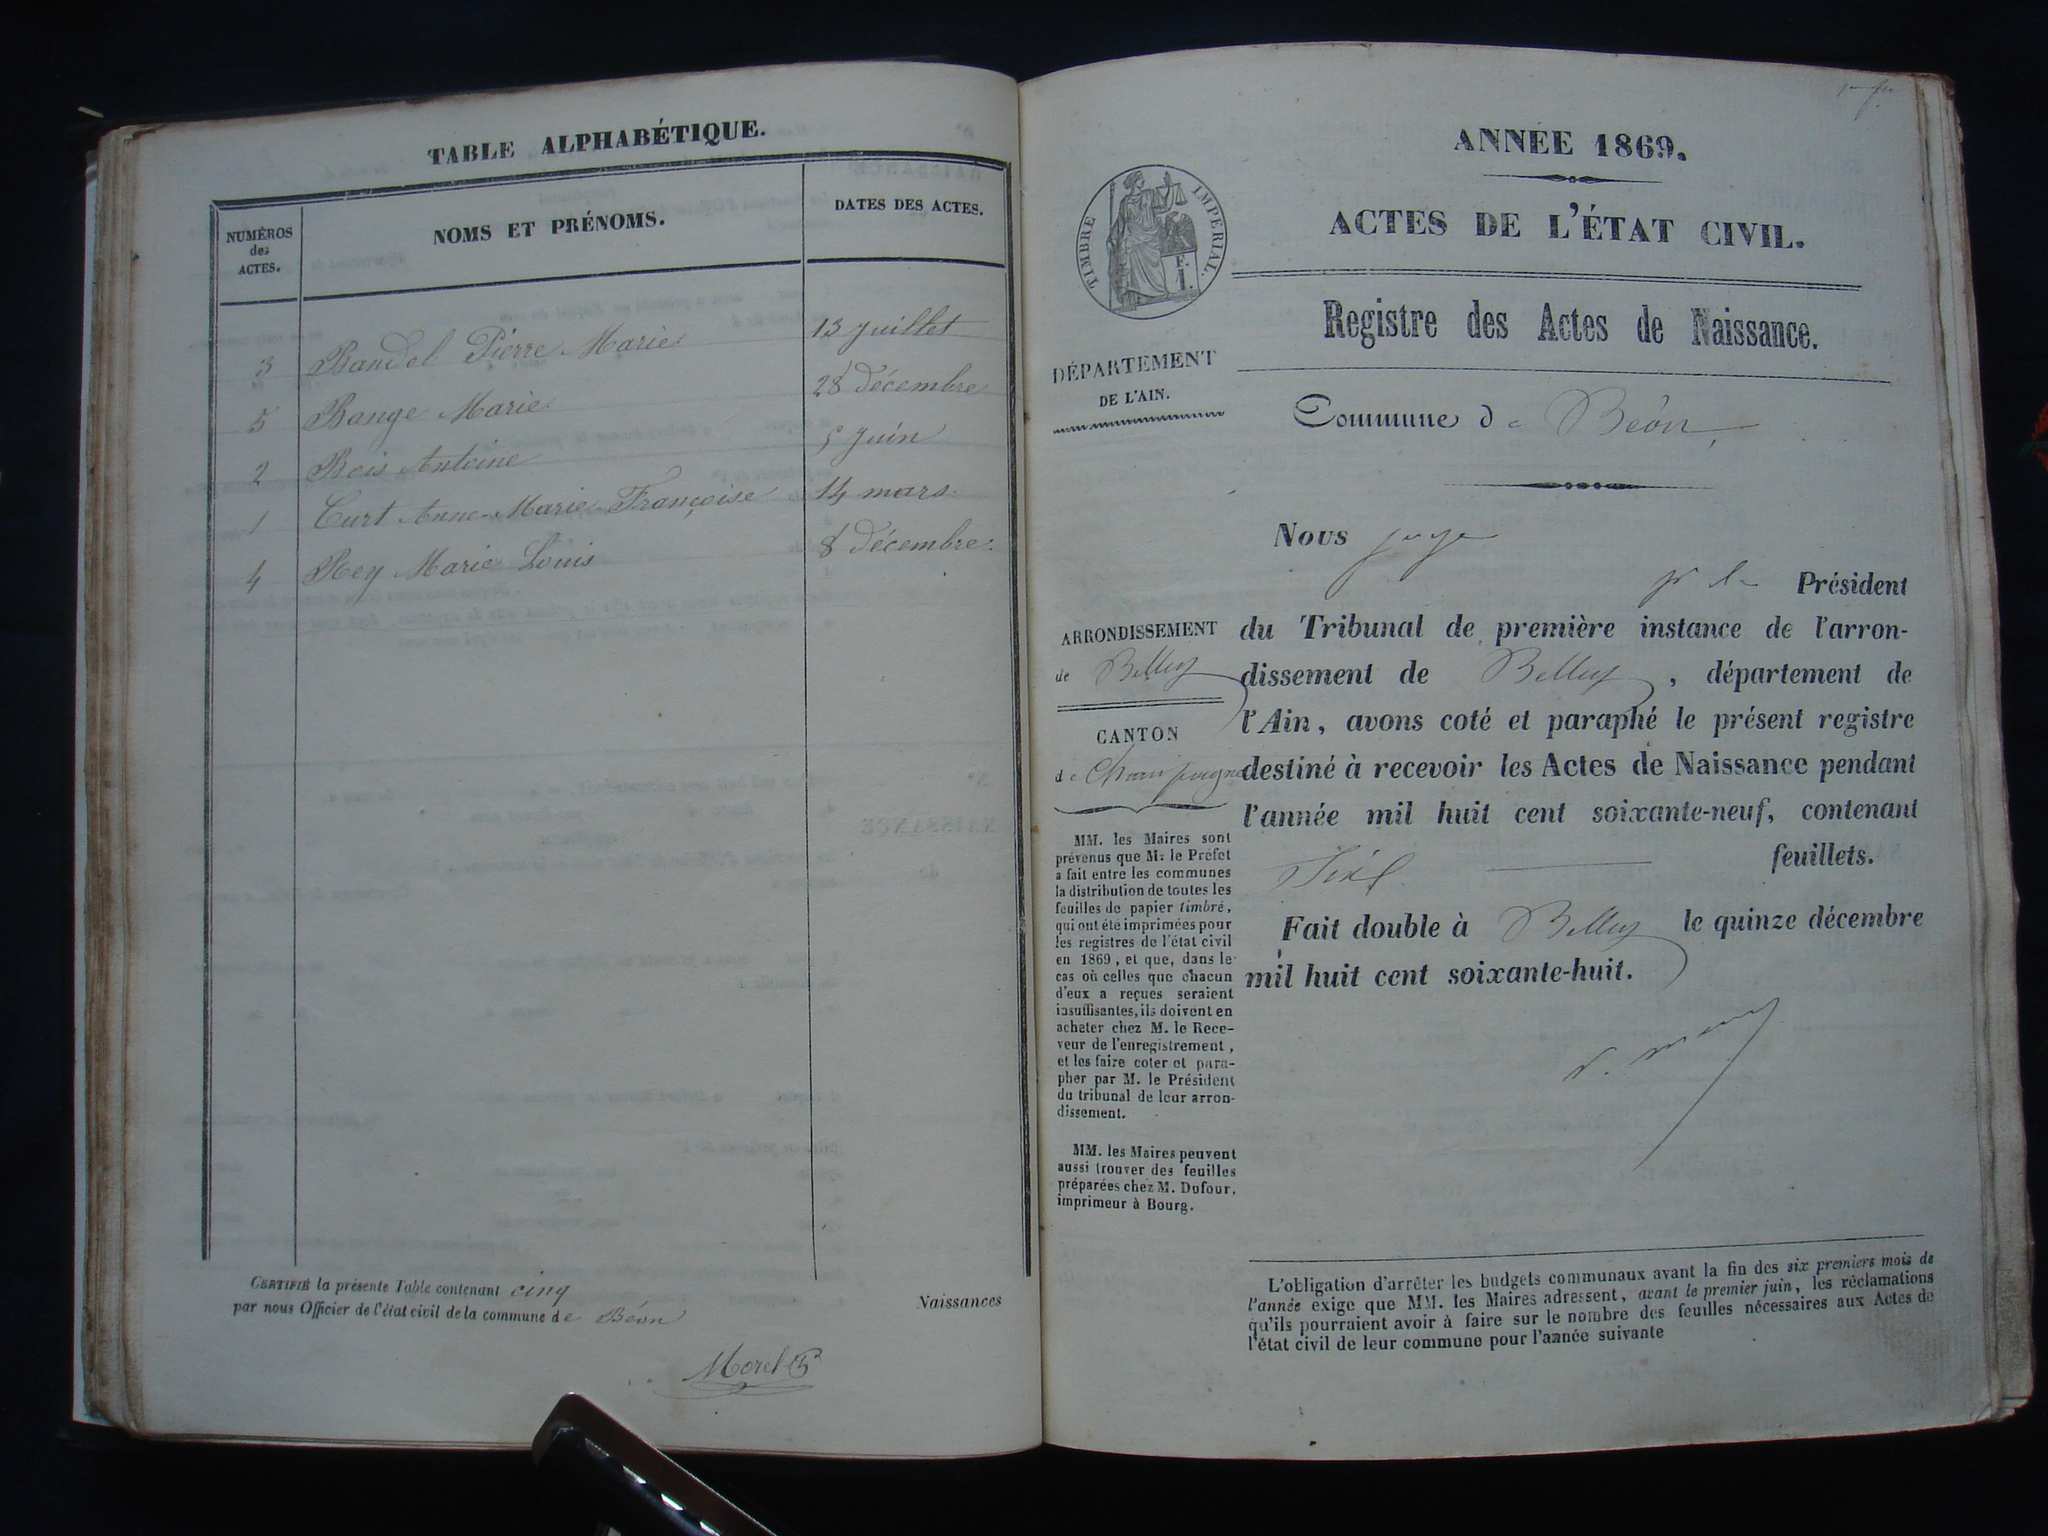 TABLE ALPHABÉTIQUE.
NUMÉROS
des
ACTES.
NOMS ET PRÉNOMS.
DATES DES ACTES.
3 Bandel Pierre Marie 13 juillet
5 Bange Marie 28 décembre
2 Bois Antoine 5 juin
1 Curt Anne-Marie-Françoise 14 mars
4 Rey Marie Louis 8 décembre
CERTIFIÉ la présente Table contenant cinq Naissances
par nous Officier de l'état civil de la commune de Béon
Morel
ANNÉE 1869.
ACTES DE L'ÉTAT CIVIL.
TIMBRE IMPERIAL.
F.
1.
Registre des Actes de Naissance.
DÉPARTEMENT
DE L'AIN.
Commune de Béon
ARRONDISSEMENT
de Belley
CANTON
de Champagne
MM. les Maires sont
prévenus que M. le Préfet
a fait entre les communes
la distribution de toutes les
feuilles de papier timbré,
qui ont été imprimées pour
les registres de l'état civil
en 1869, et que, dans le
cas où celles que chacun
d'eux a reçues seraient
insuffisantes, ils doivent en
acheter chez M. le Rece-
veur de l'enregistrement,
et les faire coter et para-
pher par M. le Président
du tribunal de leur arron-
dissement.
MM. les Maires peuvent
aussi trouver des feuilles
préparées chez M. Dufour,
imprimeur à Bourg.
Nous juge
pr le Président
du Tribunal de première instance de l'arron-
dissement de Belley, département de
l'Ain, avons coté et paraphé le présent registre
destiné à recevoir les Actes de Naissance pendant
l'année mil huit cent soixante-neuf, contenant
feuillets.
Fait double à Belley le quinze décembre
mil huit cent soixante-huit.
L'obligation d'arrêter les budgets communaux avant la fin des six premiers mois de
l'année exige que MM. les Maires adressent, avant le premier juin, les réclamations
qu'ils pourraient avoir à faire sur le nombre des feuilles nécessaires aux Actes de
l'état civil de leur commune pour l'année suivante